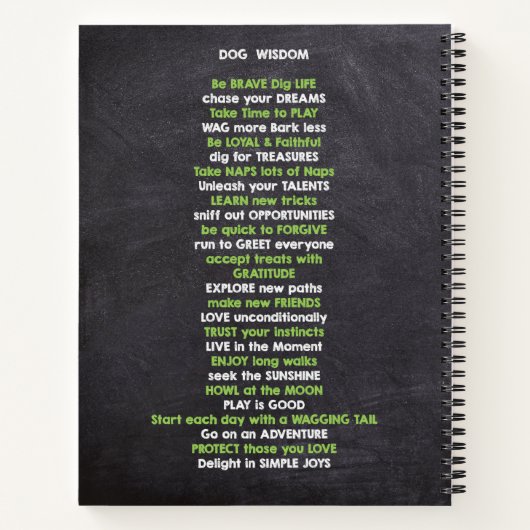 DOG WISDOM
Be BRAVE Dig LIFE
chase your DREAMS
Take Time to PLAY
WAG more Bark less
Be LOYAL & Faithful
dig for TREASURES
Take NAPS lots of Naps
Unleash your TALENTS
LEARN new tricks
sniff out OPPORTUNITIES
be quick to FORGIVE
run to GREET everyone
accept treats with
GRATITUDE
EXPLORE new paths
make new FRIENDS
LOVE unconditionally
TRUST your instincts
LIVE in the Moment
ENJOY long walks
seek the SUNSHINE
HOWL at the MOON
PLAY is GOOD
Start each day with a WAGGING TAIL
Go on an ADVENTURE
PROTECT those you LOVE
Delight in SIMPLE JOYS